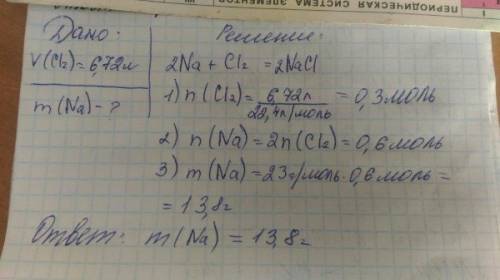 ПЕРИОДИЧЕСКАЯ СИСТЕМА ЭЛЕМЕНТОВ
Дано:
V(Cl₂)=6,72л
m(Na)-?
Решение:
2Na + Cl₂ = 2NaCl
1) n(Cl₂) = 6,72л / 22,4л/моль = 0,3моль
2) n(Na) = 2n(Cl₂) = 0,6моль
3) m(Na) = 23г/моль · 0,6моль =
= 13,8г
Ответ: m(Na) = 13,8г